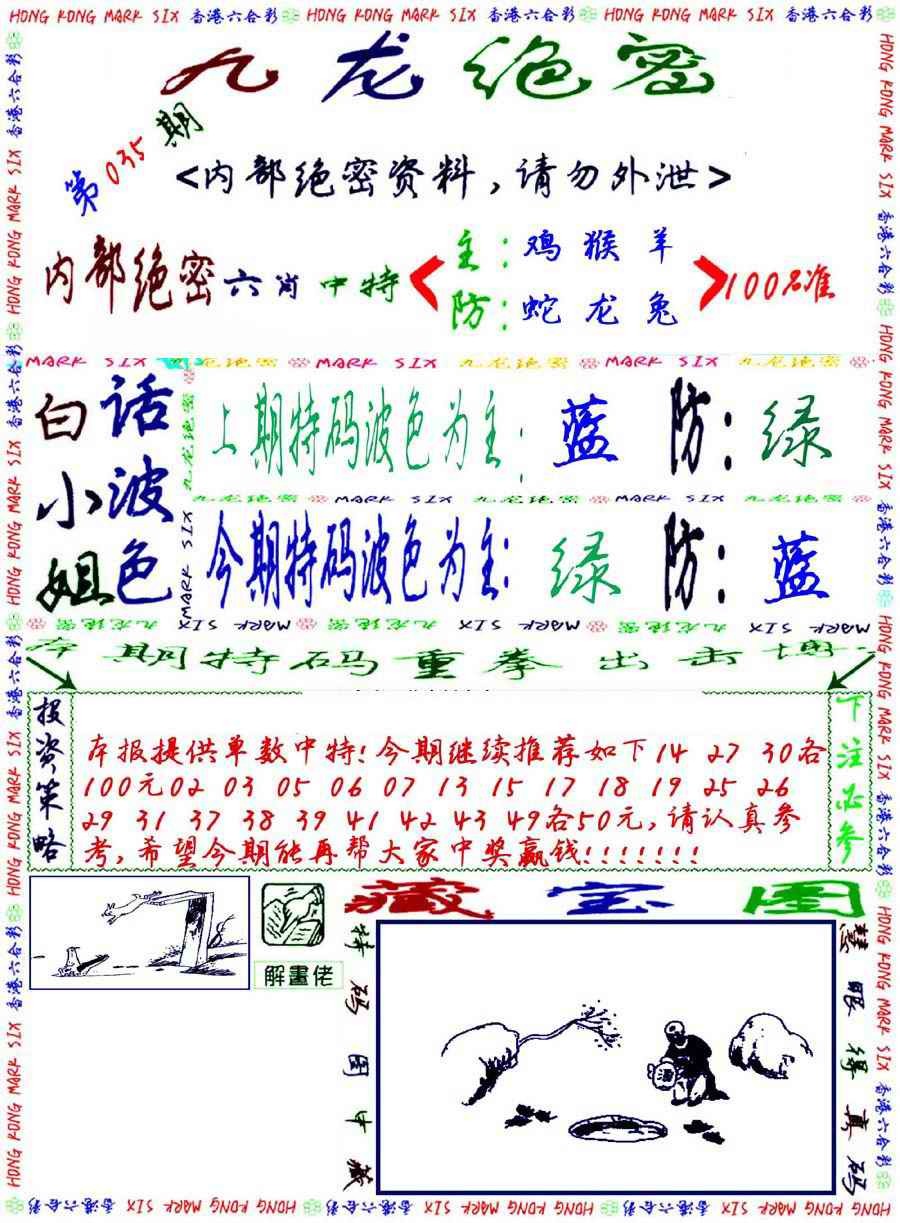 HONG KONG MARK SIX 香港六合彩 HONG KONG MARK SIX 香港六合彩 HONG KONG MARK SIX 香港六合彩
九龙绝密
第035期
<内部绝密资料,请勿外泄>
内部绝密六肖中特
主:鸡猴羊
防:蛇龙兔
100%准
MARK SIX 九龙绝密 MARK SIX 九龙绝密 MARK SIX 九龙绝密
白话小姐
波色
上期特码波色为主:蓝 防:绿
九龙绝密 MARK SIX 九龙绝密 MARK SIX 九龙绝密
今期特码波色为主:绿 防:蓝
MARK SIX 九龙绝密 MARK SIX 九龙绝密 MARK SIX 九龙绝密
本期特码重拳出击博
投资策略
本报提供单数中特!今期继续推荐如下14 27 30各
100元02 03 05 06 07 13 15 17 18 19 25 26
29 31 37 38 39 41 42 43 49各50元,请认真参
考,希望今期能再帮大家中奖赢钱!!!!!!!
下注必参
解畫佬
藏宝图
特码图中藏
酒
慧眼得真码
HONG KONG MARK SIX 香港六合彩 HONG KONG MARK SIX 香港六合彩 HONG KONG MARK SIX 香港六合彩